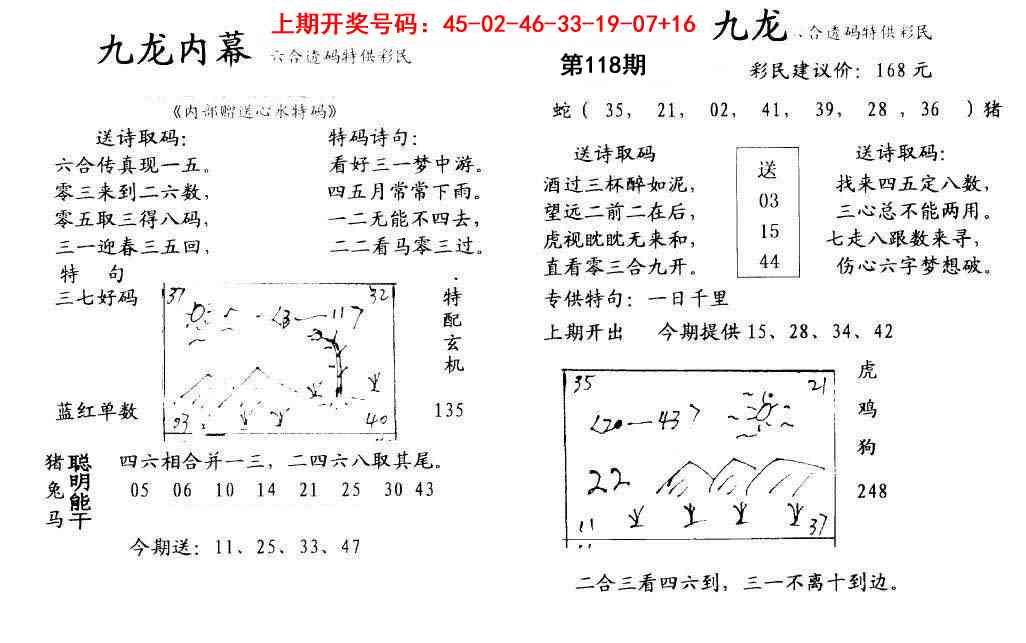 上期开奖号码：45-02-46-33-19-07+16
九龙内幕 六合透码特供彩民
《内部赠送心水特码》
送诗取码：
六合传真现一五。
零三来到二六数，
零五取三得八码，
三一迎春三五回，
特 句
三七好码
蓝红单数
特码诗句：
看好三一梦中游。
四五月常常下雨。
一二无能不四去，
二二看马零三过。
37 32
<13—117
93 40
特配玄机
135
猪兔马
聪明能干
四六相合并一三，二四六八取其尾。
05 06 10 14 21 25 30 43
今期送：11、25、33、47
九龙 合透码特供彩民
第118期
彩民建议价：168元
蛇（ 35， 21， 02， 41， 39， 28 ，36 ）猪
送诗取码
酒过三杯醉如泥，
望远二前二在后，
虎视眈眈无来和，
直看零三合九开。
送
03
15
44
送诗取码：
找来四五定八数，
三心总不能两用。
七走八跟数来寻，
伤心六字梦想破。
专供特句：一日千里
上期开出 今期提供15、28、34、42
35 21
<20—437
22
11 37
虎
鸡
狗
248
二合三看四六到，三一不离十到边。